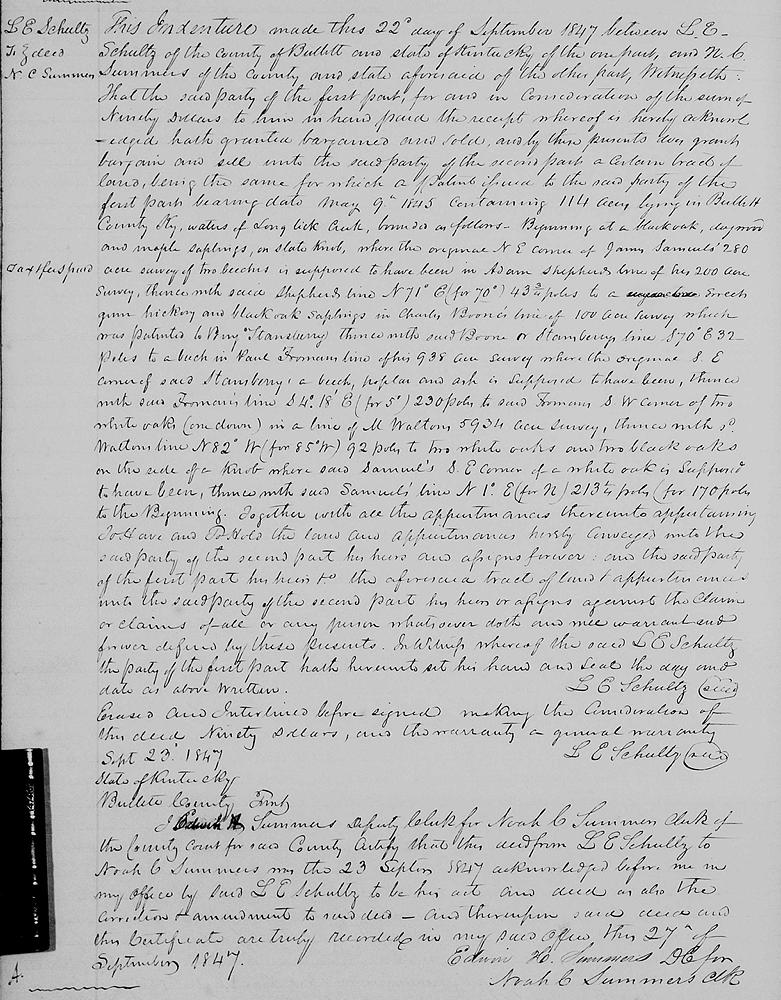 L E Schultz
To } deed
N. C Summers
This Indenture made this 22d day of September 1847 between L. E-
Schultz of the county of Bullitt and state of Kentucky of the one part, and N. C.
Summers of the county and state aforesaid of the other part, Witnesseth:
That the said party of the first part, for and in Consideration of the sum of
Ninety Dollars to him in hand paid the receipt whereof is hereby acknowl
-edged hath granted bargained and sold, and by these presents does grant
bargain and sell unto the said party of the second part a Certain tract of
land, being the same for which a Patent issued to the said party of the
first part bearing date May 9th 1845 Containing 114 acres lying in Bullitt
County Ky, waters of Long lick Creek, bounded as follows - Beginning at a black oak, dogwood
and maple saplings, on state Knob, where the original N E corner of James Samuels' 280
Tax & fees paid
acre survey of two beeches is supposed to have been in Adam Shepherds line of his 200 acre
Survey, thence with said Shepherds line N 71° E (for 70°) 43 3/4 poles to a Sweet
gum hickory and black oak saplings in Charles Boone's line of 100 acre survey which
was patented to Benj Stansberry thence with said Boone or Stansberrys line S 70° E 32-
Poles to a beech in Paul Fromans line of his 938 acre survey where the original S. E
corner of said Stansberry, a beech, poplar and ash is Supposed to have been, thence
with said Froman's line S 4° 18' E (for 5°) 230 poles to said Fromans S. W corner of two
white oaks (one down) in a line of M Waltons 5934 acre survey, thence with sd
Waltons line N 82° W (for 85° W) 92 poles to two white oaks and two black oaks
on the side of a Knob where said Samuel's S. E corner of a white oak is Supposed
to have been, thence with said Samuels' line N 1° E (for N) 213 1/2 poles (for 170 poles
to the Beginning. Together with all the appurtenances thereunto appertaining
To Have and To Hold the land and appurtenances hereby Conveyed unto the
said party of the second part his heirs and assigns forever: and the said party
of the first part his heirs &c the aforesaid tract of land & appurtenances
unto the said party of the second part his heirs or assigns against the Claim
or claims of all or any person whatsoever doth and will warrant and
forever defend by these presents. In Witness whereof the said L E Schultz
the party of the first part hath hereunto set his hand and seal the day and
date as above Written.
L E Schultz (seal)
Erased and Interlined before signed making the Consideration of
this deed Ninety Dollars, and the warranty a general warranty
Sept 23d 1847
L E Schultz (seal)
State of Kentucky
Bullitt County
I Edwin H Summers Deputy Clerk for Noah C Summers Clerk of
the County Court for said County Certify that this deed from L E Schultz to
Noah C Summers was the 23 Septem 1847 acknowledged before me in
my office by said L E Schultz to be his act and deed as also the
correction & amendment to said deed - and thereupon said deed and
this Certificate are truly recorded in my said office this 27th of
September 1847.
Edwin H. Summers DC for
Noah C Summers Clk
A.